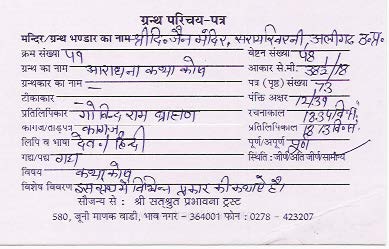 ग्रन्थ परिचय-पत्र
मन्दिर/ग्रन्थ भण्डार का नाम श्री दि. जैन मंदिर, अलीगढ़ उ.प्र.
क्रम संख्या ५१ वेष्टन संख्या ५४
ग्रन्थ का नाम आराधना कथा कोष आकार से.मी.
ग्रन्थकार का नाम — पत्र (पृष्ठ) संख्या 73
टीकाकार — पंक्ति अक्षर 12/39
प्रतिलिपिकार गोविन्द राम ब्राह्मण रचनाकाल
कागज/ताड़पत्र कागज प्रतिलिपिकाल
लिपि व भाषा देव. / हिन्दी पूर्ण/अपूर्ण पूर्ण
गद्य/पद्य गद्य स्थिति : जीर्ण/अति जीर्ण/सामान्य
विषय कथा कोष
विशेष विवरण इस ग्रन्थ में विभिन्न प्रकार की कथाएँ है।
सौजन्य से : श्री सतश्रुत प्रभावना ट्रस्ट
580, जूनी माणक वाडी, भाव नगर – 364001 फोन : 0278 – 423207